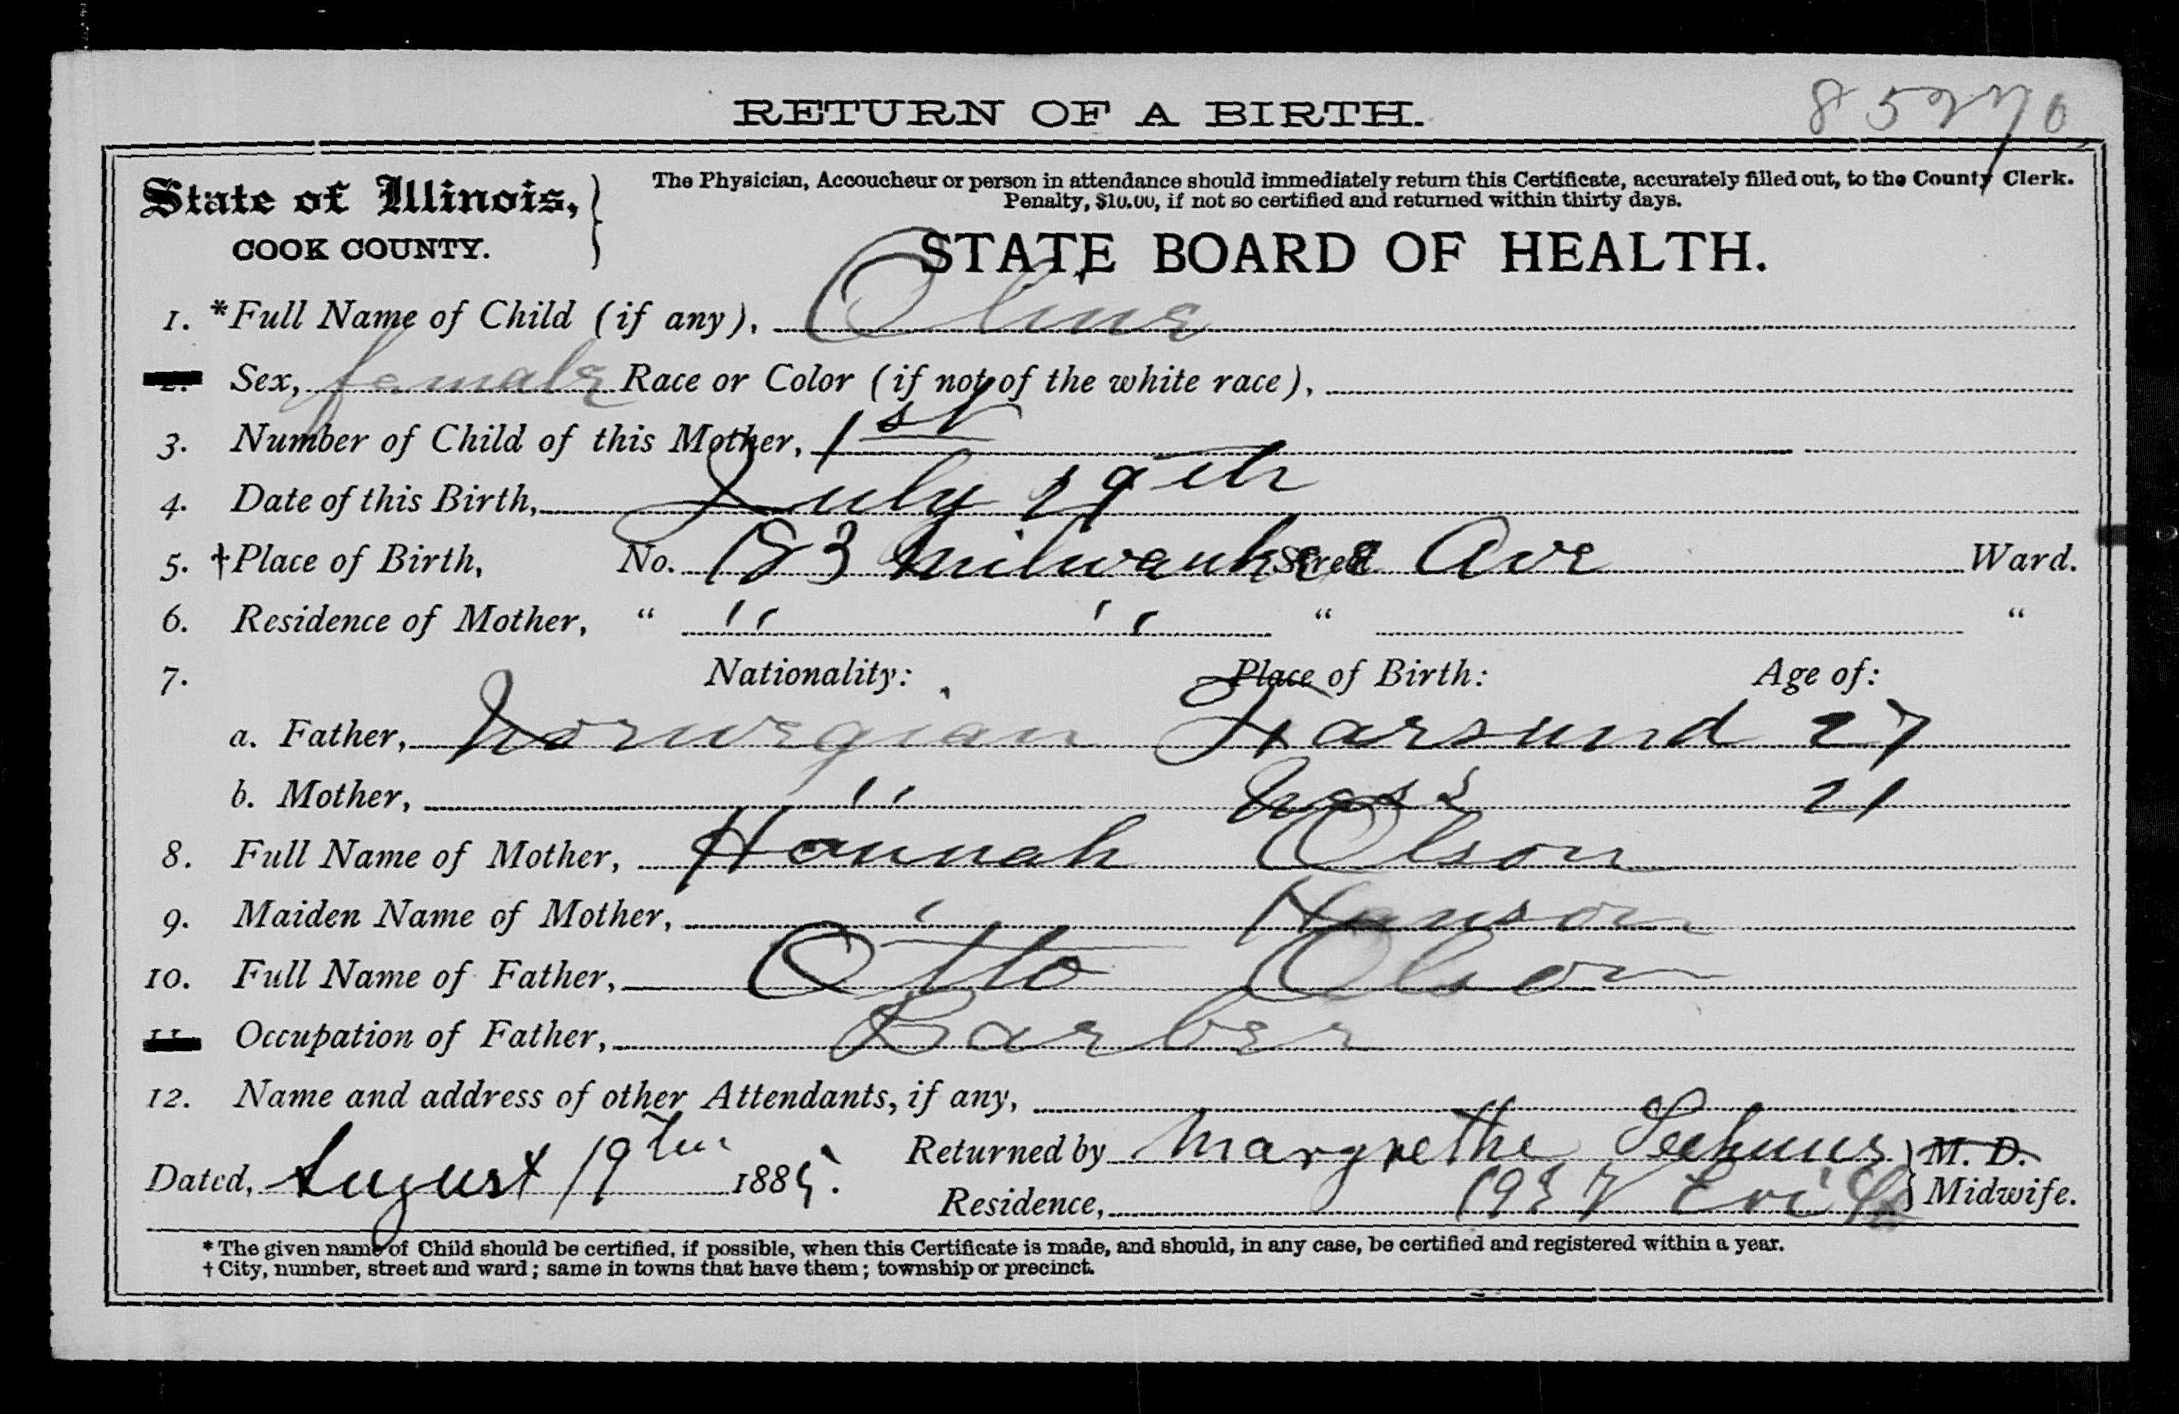 RETURN OF A BIRTH.
85270
State of Illinois,
COOK COUNTY.
The Physician, Accoucheur or person in attendance should immediately return this Certificate, accurately filled out, to the County Clerk.
Penalty, $10.00, if not so certified and returned within thirty days.
STATE BOARD OF HEALTH.
1. *Full Name of Child (if any), Oline
2. Sex, female Race or Color (if not of the white race),
3. Number of Child of this Mother, 1st
4. Date of this Birth, July 19th
5. †Place of Birth, No. 183 Milwaukee Street Ave Ward.
6. Residence of Mother, " " " " "
7. Nationality: Place of Birth: Age of:
a. Father, Norwegian Farsund 27
b. Mother, " 21
8. Full Name of Mother, Hannah Olson
9. Maiden Name of Mother, " Hanson
10. Full Name of Father, Otto Olson
11. Occupation of Father, Barber
12. Name and address of other Attendants, if any,
Dated, August 19th 1885. Returned by Margrethe M. D.
Residence, Erie Midwife.
* The given name of Child should be certified, if possible, when this Certificate is made, and should, in any case, be certified and registered within a year.
† City, number, street and ward; same in towns that have them; township or precinct.